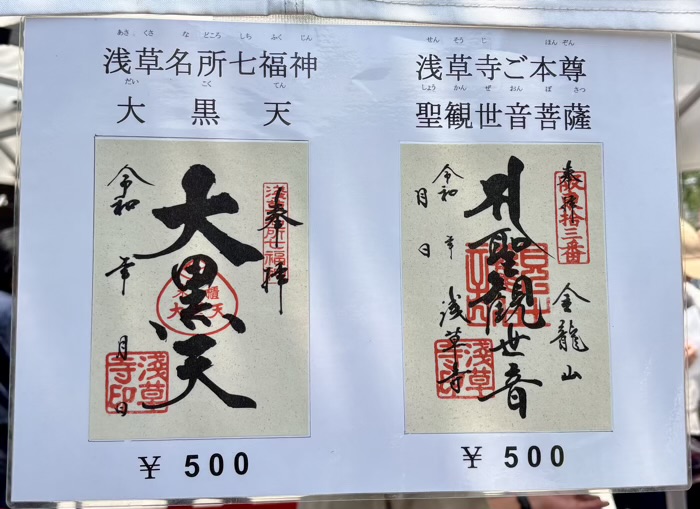 あさ くさ な どころ しち ふく じん
浅草名所七福神
だい こく てん
大黒天
奉拝
浅草名所七福神
大黒天
令和 年 月 日
浅草寺印
¥ 500
せん そう じ ほん ぞん
浅草寺ご本尊
しょう かん ぜ おん ぼ さつ
聖観世音菩薩
奉拝
坂東拾三番
金龍山
聖観世音
令和 年
月 日
浅草寺
浅草寺印
¥ 500